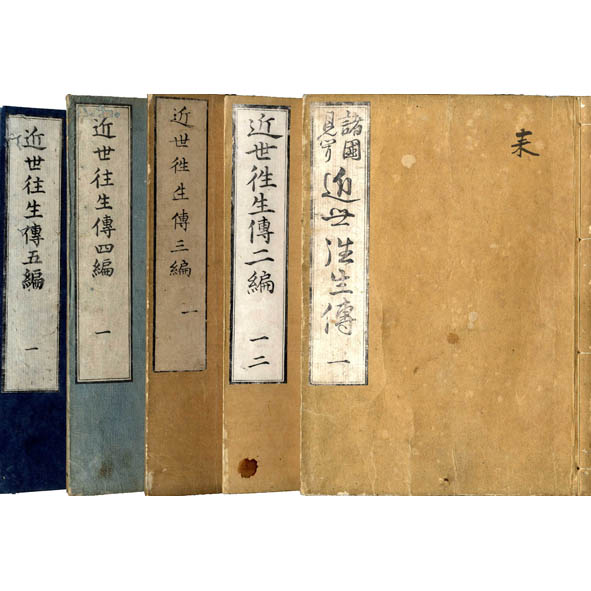 耒
諸國
見聞
近世往生傳
一
近世往生傳二編
一二
近世往生傳三編
一
近世往生傳四編
一
近世往生傳五編
一